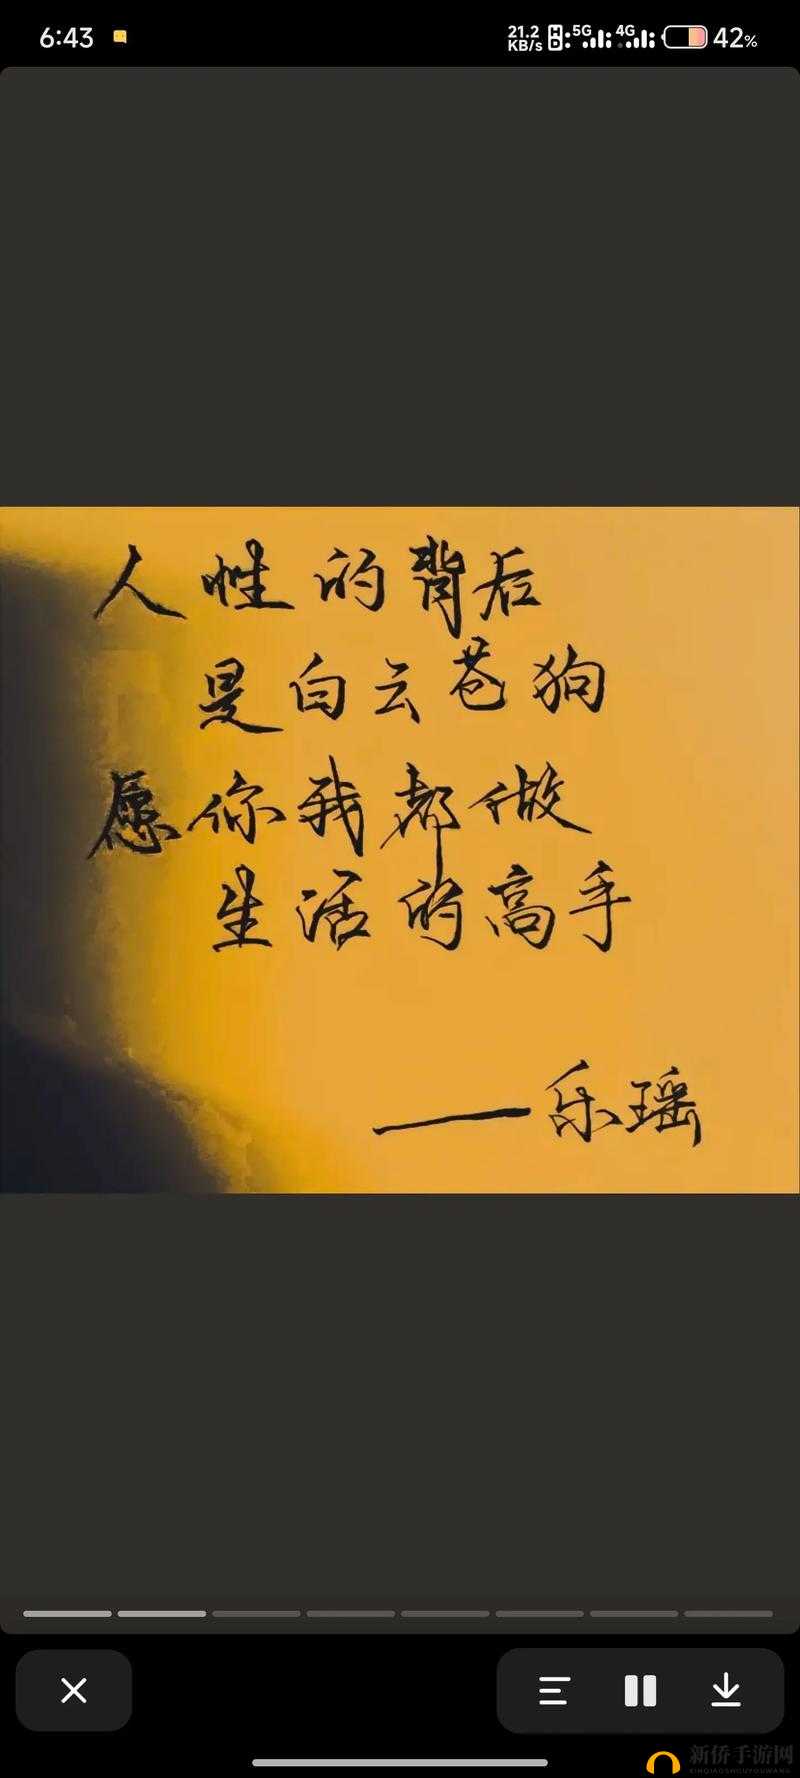 6:43
21.2 KB/s HD 5G 4G 42%
人性的背后
是白云苍狗
愿你我都做
生活的高手
——乐瑶
新侨手游网
XINQIAOSHOUYOUWANG